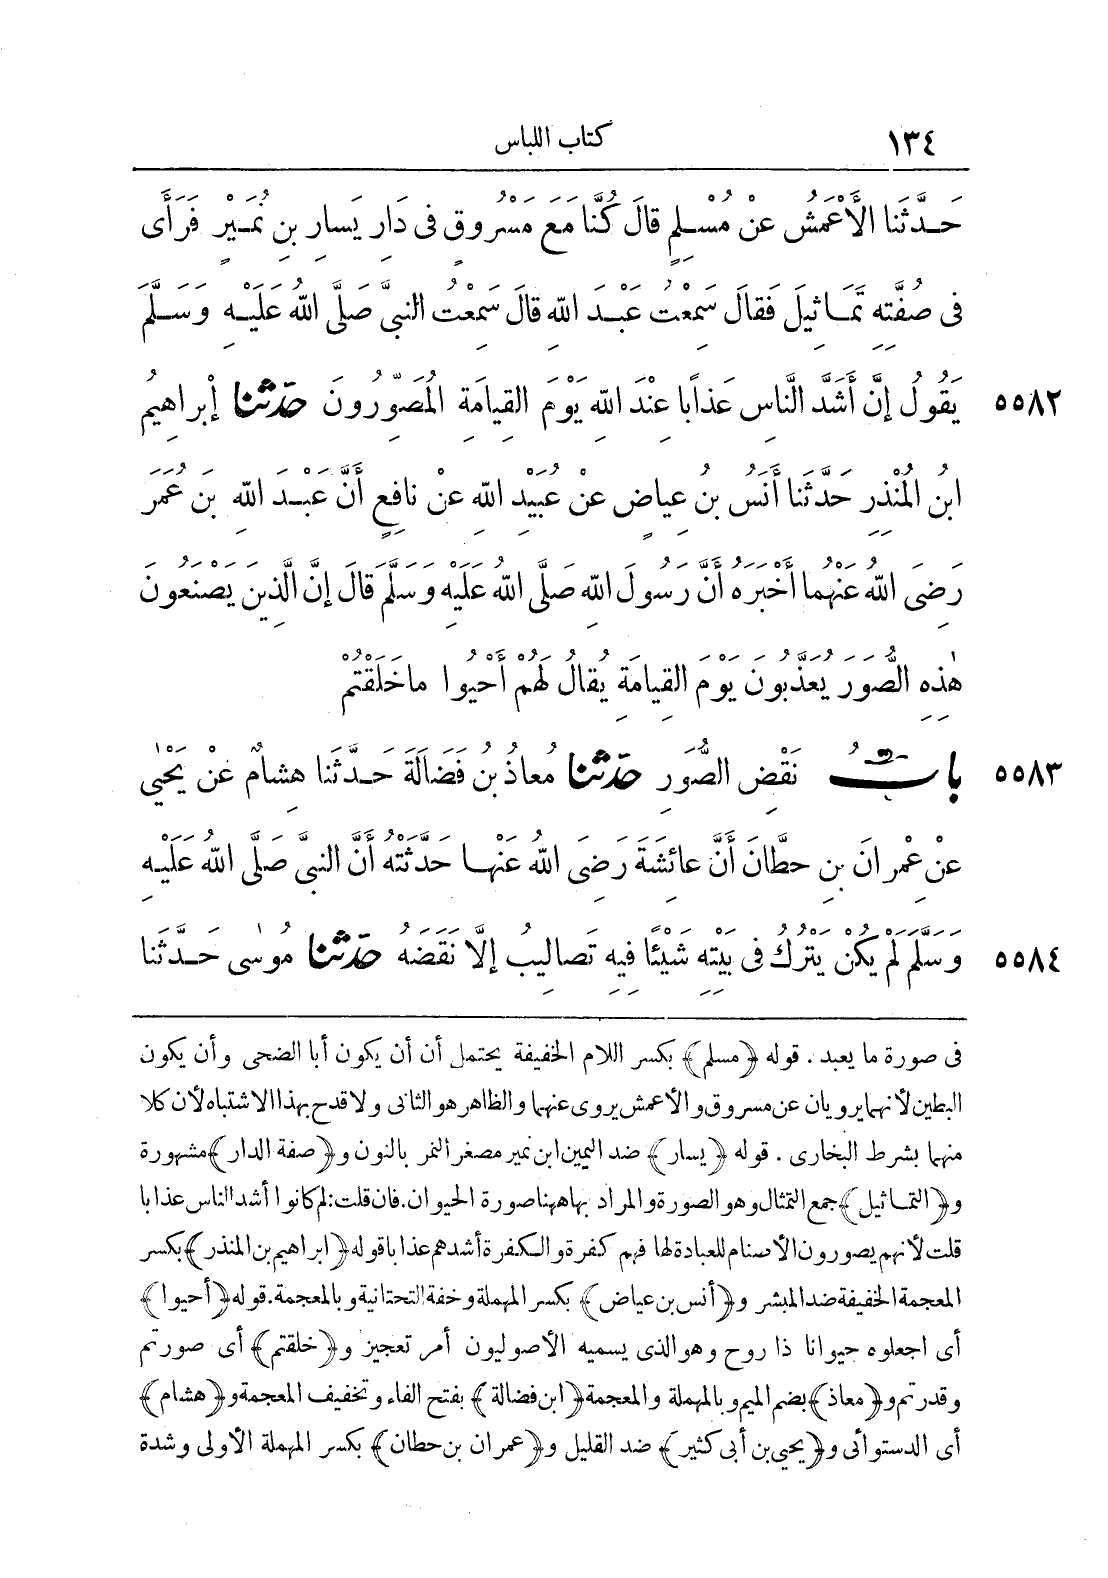 ١٣٤ كتاب اللباس
حَدَّثَنَا الْأَعْمَشُ عَنْ مُسْلِمٍ قَالَ كُنَّا مَعَ مَسْرُوقٍ فِى دَارِ يَسَارِ بْنِ نُمَيْرٍ فَرَأَى
فِى صُفَّتِهِ تَمَاثِيلَ فَقَالَ سَمِعْتُ عَبْدَ اللهِ قَالَ سَمِعْتُ النَّبِىَّ صَلَّى اللهُ عَلَيْهِ وَسَلَّمَ
٥٥٨٢ يَقُولُ إِنَّ أَشَدَّ النَّاسِ عَذَابًا عِنْدَ اللهِ يَوْمَ الْقِيَامَةِ الْمُصَوِّرُونَ حَدَّثَنَا إِبْرَاهِيمُ
ابْنُ الْمُنْذِرِ حَدَّثَنَا أَنَسُ بْنُ عِيَاضٍ عَنْ عُبَيْدِ اللهِ عَنْ نَافِعٍ أَنَّ عَبْدَ اللهِ بْنَ عُمَرَ
رَضِىَ اللهُ عَنْهُمَا أَخْبَرَهُ أَنَّ رَسُولَ اللهِ صَلَّى اللهُ عَلَيْهِ وَسَلَّمَ قَالَ إِنَّ الَّذِينَ يَصْنَعُونَ
هٰذِهِ الصُّوَرَ يُعَذَّبُونَ يَوْمَ الْقِيَامَةِ يُقَالُ لَهُمْ أَحْيُوا مَا خَلَقْتُمْ
٥٥٨٣ بَابُ نَقْضِ الصُّوَرِ حَدَّثَنَا مُعَاذُ بْنُ فَضَالَةَ حَدَّثَنَا هِشَامٌ عَنْ يَحْيٰى
عَنْ عِمْرَانَ بْنِ حِطَّانَ أَنَّ عَائِشَةَ رَضِىَ اللهُ عَنْهَا حَدَّثَتْهُ أَنَّ النَّبِىَّ صَلَّى اللهُ عَلَيْهِ
٥٥٨٤ وَسَلَّمَ لَمْ يَكُنْ يَتْرُكُ فِى بَيْتِهِ شَيْئًا فِيهِ تَصَالِيبُ إِلَّا نَقَضَهُ حَدَّثَنَا مُوسٰى حَدَّثَنَا
فى صورة ما يعبد . قوله ﴿مسلم﴾ بكسر اللام الخفيفة يحتمل أن أن يكون أبا الضحى وأن يكون
البطين لأنهما يرويان عن مسروق والأعمش يروى عنهما والظاهر هو الثانى ولا قدح بهذا الاشتباه لأن كلا
منهما بشرط البخارى . قوله ﴿يسار﴾ ضد اليمين ابن نمير مصغر النمر بالنون و﴿صفة الدار﴾ مشهورة
و﴿التماثيل﴾ جمع التمثال وهو الصورة والمراد بها ههنا صورة الحيوان . فان قلت : لم كانوا أشد الناس عذابا
قلت لأنهم يصورون الأصنام للعبادة لها فهم كفرة والكفرة أشدهم عذابا قوله ﴿ابراهيم بن المنذر﴾ بكسر
المعجمة الخفيفة ضد المبشر و﴿أنس بن عياض﴾ بكسر المهملة وخفة التحتانية وبالمعجمة . قوله ﴿أحيوا﴾
أى اجعلوه حيوانا ذا روح وهو الذى يسميه الأصوليون أمر تعجيز و﴿خلقتم﴾ أى صورتم
وقدرتم و﴿معاذ﴾ بضم الميم وبالمهملة والمعجمة ﴿ابن فضالة﴾ بفتح الفاء وتخفيف المعجمة و﴿هشام﴾
أى الدستوائى و﴿يحيى بن أبى كثير﴾ ضد القليل و﴿عمران بن حطان﴾ بكسر المهملة الأولى وشدة